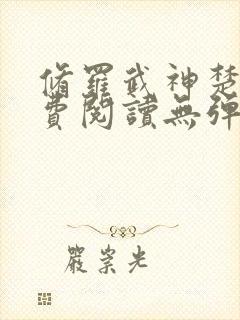 脩羅武神楚
費閱讀無彈
嚴崇光